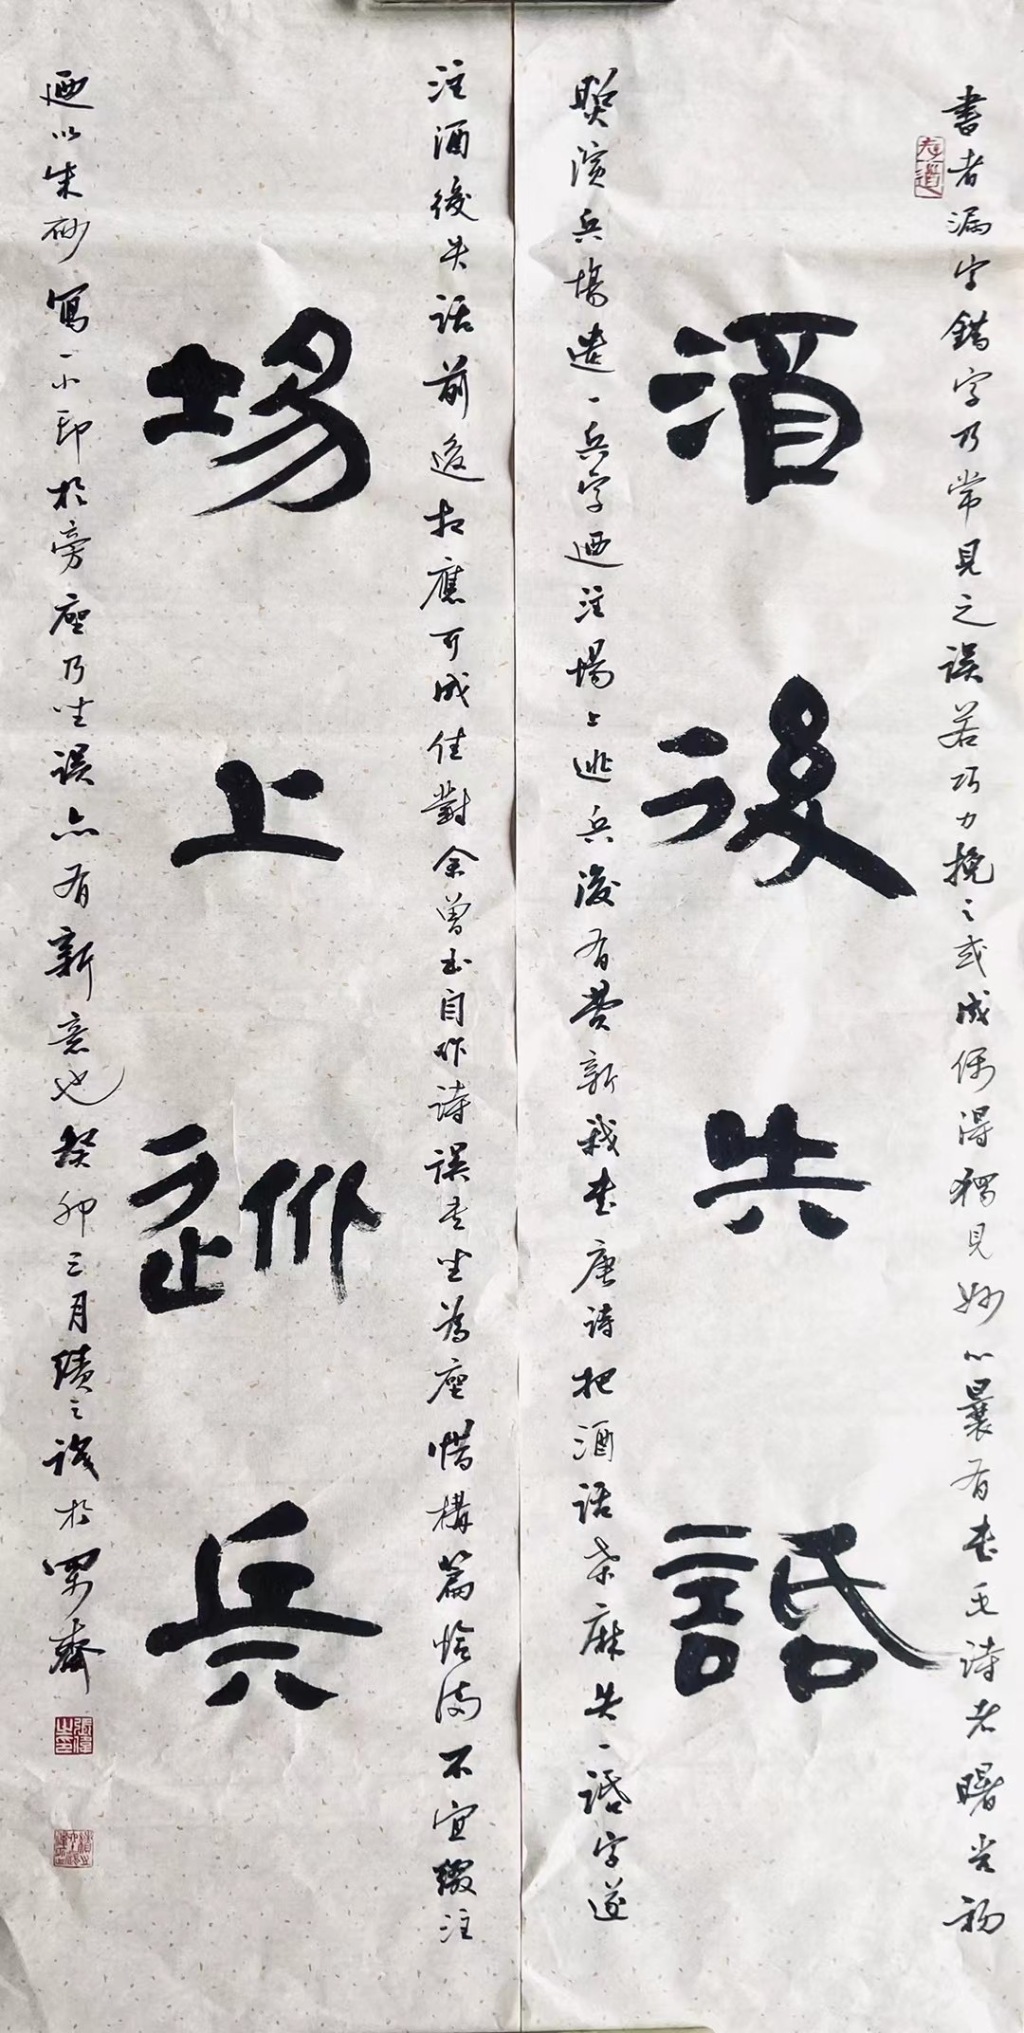 書者漏字錯字乃常見之誤若巧力挽之或成偶得獨見妙心曩有書毛詩者曙光初
酒後失話
照演兵場遺一兵字迺注場上逃兵後有黄新我書唐詩把酒話桑麻失一話字遂
注酒後失話前後相應可成佳對余曾書自作詩誤書坐為座惜構篇恰滿不宜綴注
場上逃兵
迺以朱砂寫一小印於旁座乃坐誤亦有新意也癸卯三月績之識於墨齋